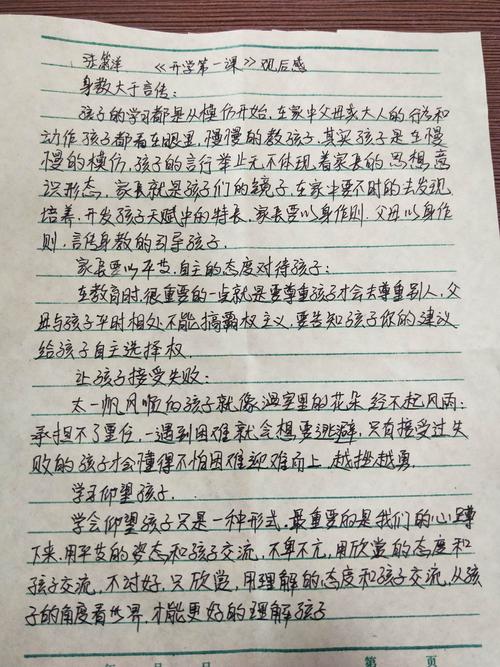 张 洋 《开学第一课》观后感
身教大于言传:
孩子的学习都是从模仿开始,在家中父母亲大人的行为和
动作,孩子都看在眼里,慢慢的教孩子,其实孩子是在慢
慢的模仿,孩子的言行举止无不体现着家长的思想,意
识形态,家长就是孩子们的镜子,在家中要不时的去发现
培养,开发孩子天赋中的特长,家长要以身作则,父母以身作
则,言传身教的引导孩子.
家长要以平等.自主的态度对待孩子:
在教育时,很重要的一点就是要尊重孩子才会去尊重别人,父
母与孩子平时相处不能搞霸权主义,要告知孩子你的建议
给孩子自主选择权.
让孩子接受失败:
太一帆风顺的孩子就像温室里的花朵,经不起风雨;
承担不了重任,一遇到困难就会想要逃避,只有接受过失
败的孩子才会懂得不怕困难迎难而上,越挫越勇.
学习仰望孩子.
学会仰望孩子只是一种形式,最重要的是我们的心蹲
下来,用平等的姿态和孩子交流,不卑不亢,用欣赏的态度和
孩子交流,不讨好,只欣赏,用理解的态度和孩子交流,从孩
子的角度看世界,才能更好的理解孩子
年 月 日 第 页